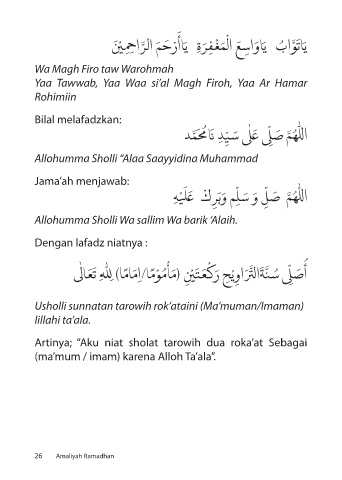 يَاتَوَّابُ يَاوَاسِعَ الْمَغْفِرَةِ يَاأَرْحَمَ الرَّاحِمِيْنَ
Wa Magh Firo taw Warohmah
Yaa Tawwab, Yaa Waa si’al Magh Firoh, Yaa Ar Hamar
Rohimiin
Bilal melafadzkan:
اللّٰهُمَّ صَلِّ عَلٰى سَيِّدِ نَامُحَمَّد
Allohumma Sholli “Alaa Saayyidina Muhammad
Jama’ah menjawab:
اللّٰهُمَّ صَلِّ وَ سَلِّم وَبَرِكْ عَلَيْهِ
Allohumma Sholli Wa sallim Wa barik ‘Alaih.
Dengan lafadz niatnya :
أُصَلِّى سُنَّةَالتَّرَاوِيْحِ رَكْعَتَيْنِ (مَأْمُوْمًا/إِمَامًا) لِلّٰهِ تَعَالٰى
Usholli sunnatan tarowih rok’ataini (Ma’muman/Imaman)
lillahi ta’ala.
Artinya; “Aku niat sholat tarowih dua roka’at Sebagai
(ma’mum / imam) karena Alloh Ta’ala”.
26 Amaliyah Ramadhan